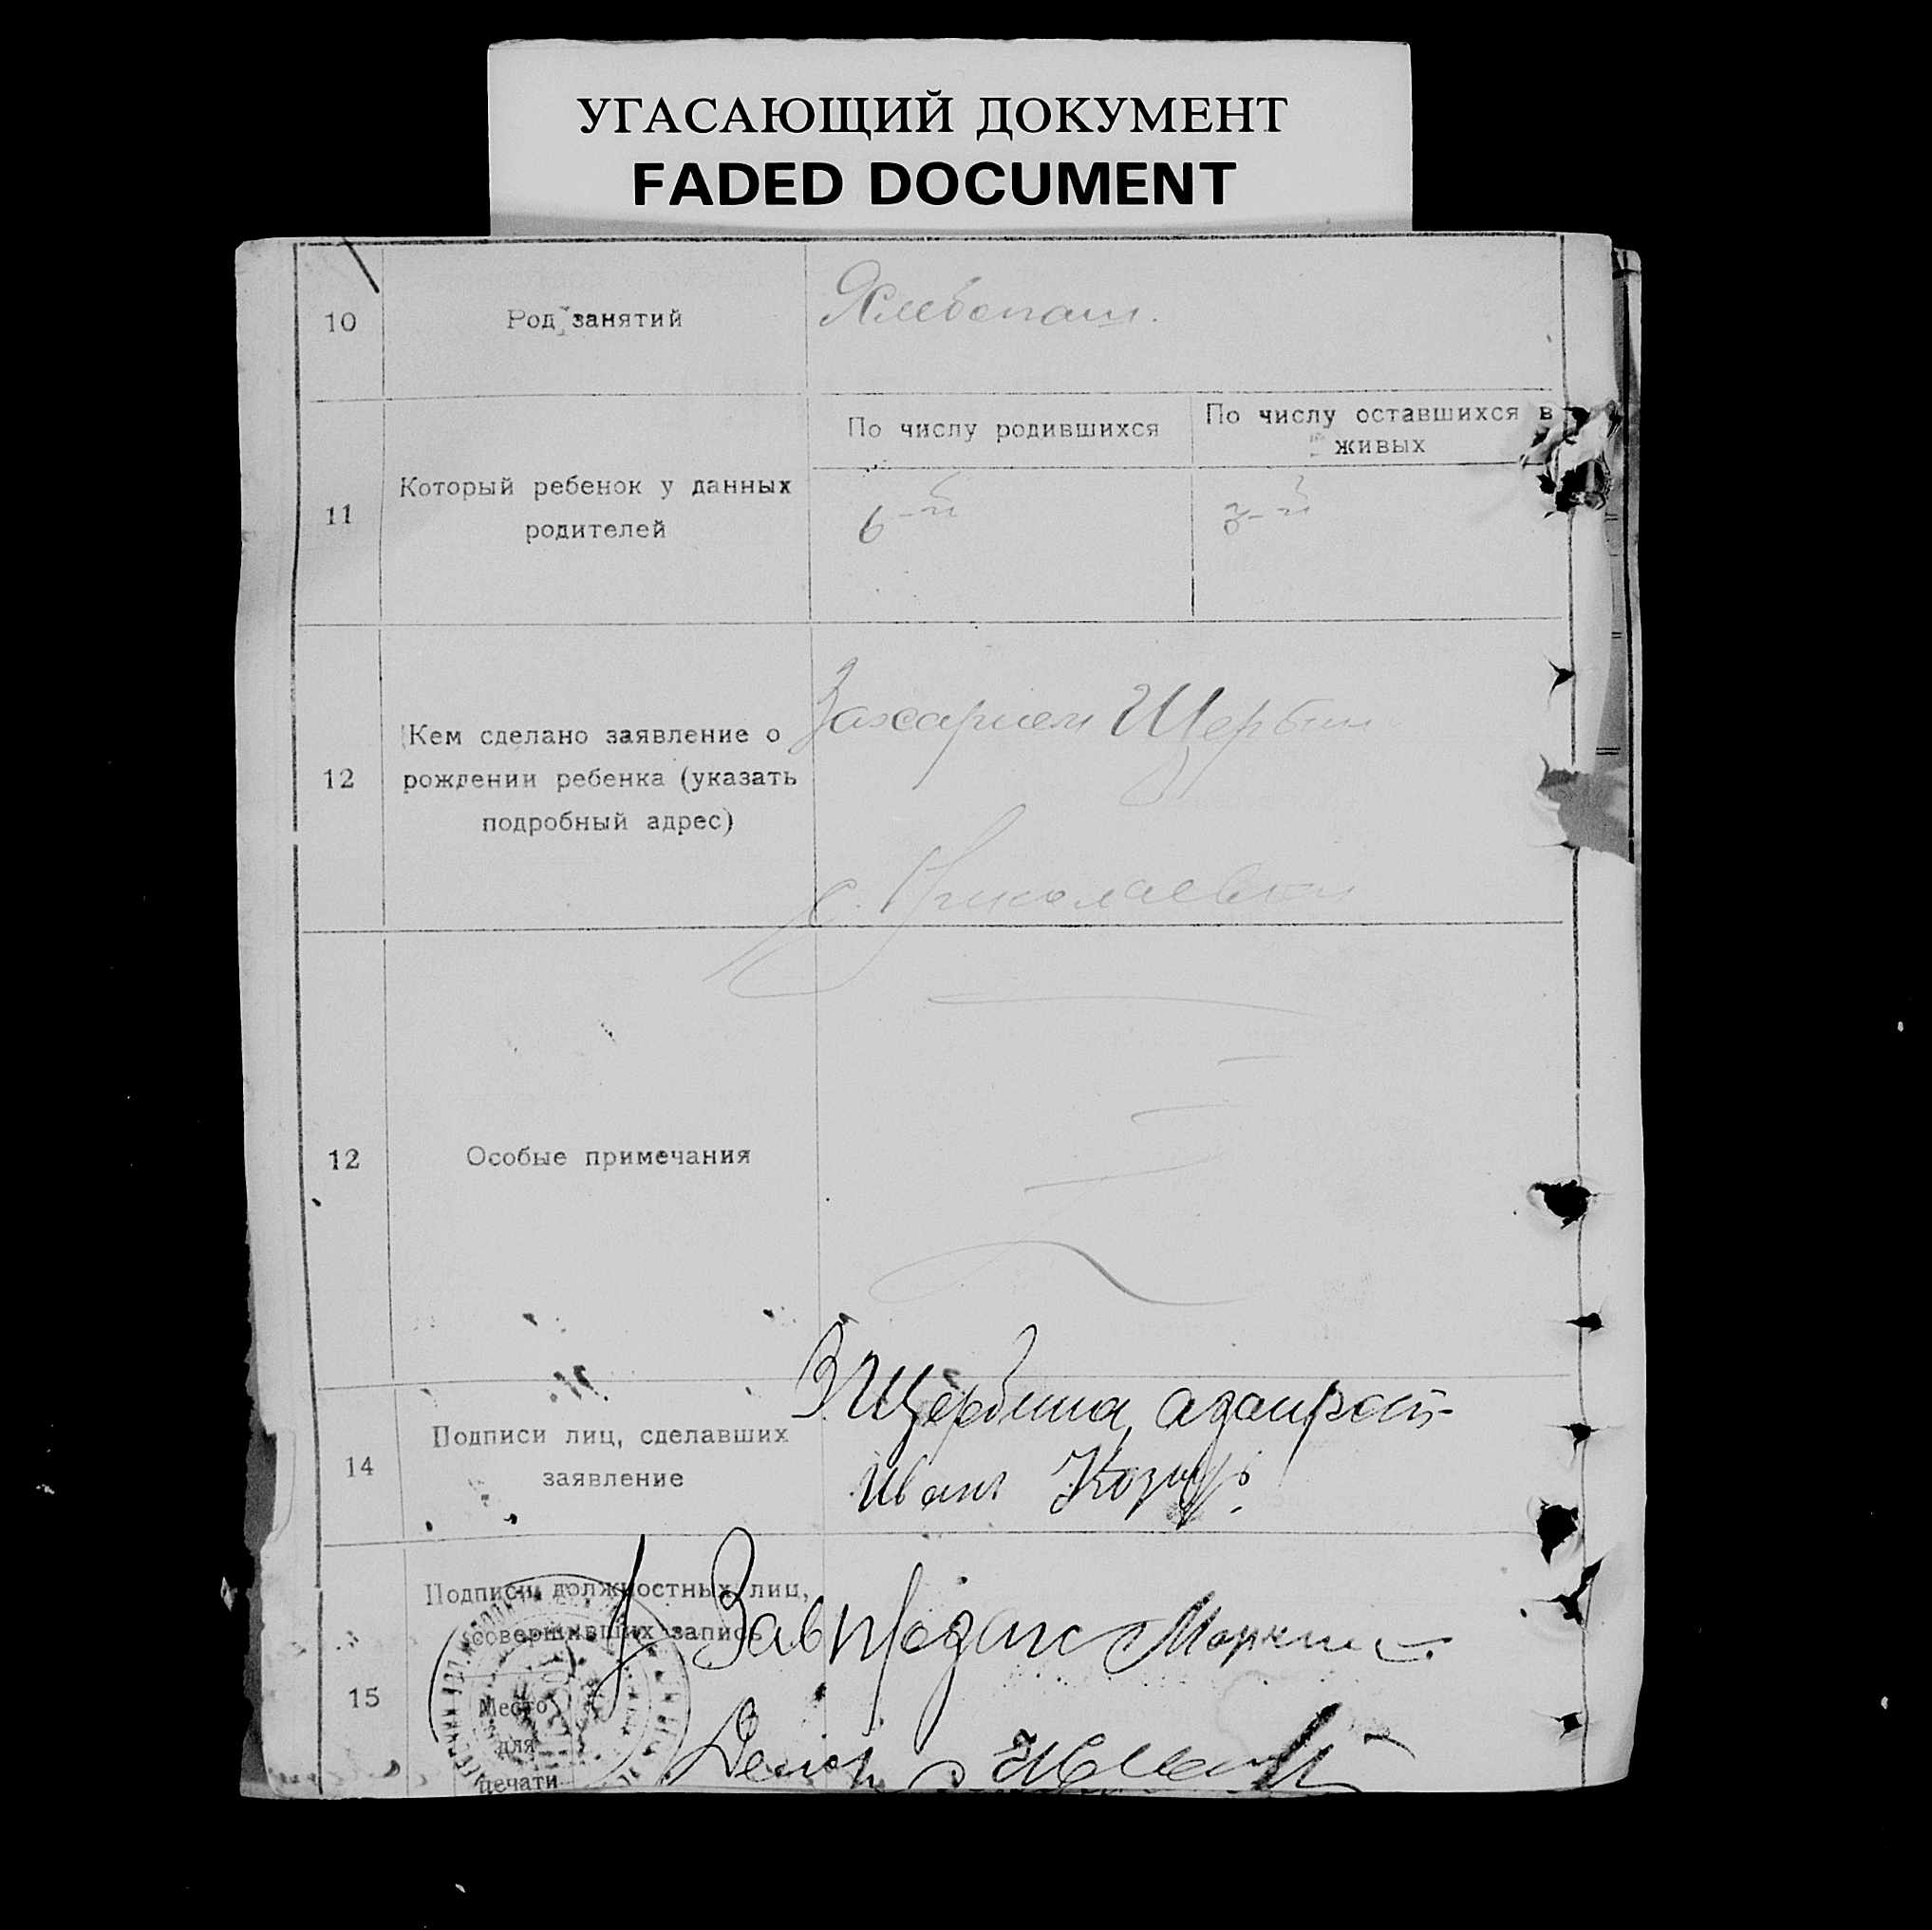 УГАСАЮЩИЙ ДОКУМЕНТ
FADED DOCUMENT
10
Род занятий
Хлебопаш.
11
Который ребенок у данных
родителей
По числу родившихся
По числу оставшихся в
живых
6-й
3-й
12
Кем сделано заявление о
рождении ребенка (указать
подробный адрес)
Захарием Щербин
с. Николаевка
12
Особые примечания
14
Подписи лиц, сделавших
заявление
З Щербина
Иван Козырь
15
Подписи должностных лиц,
совершивших запись
Место
для
печати